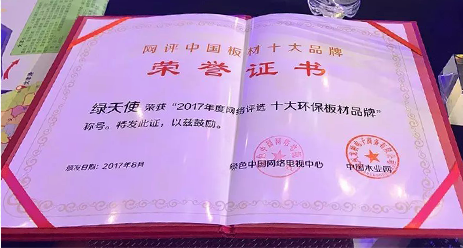 网评中国板材十大品牌
荣誉证书
绿天使 荣获“2017年度网络评选 十大环保板材品牌”
称号。特发此证，以兹鼓励。
颁发日期：2017年6月
绿色中国网络电视中心 中国木业网